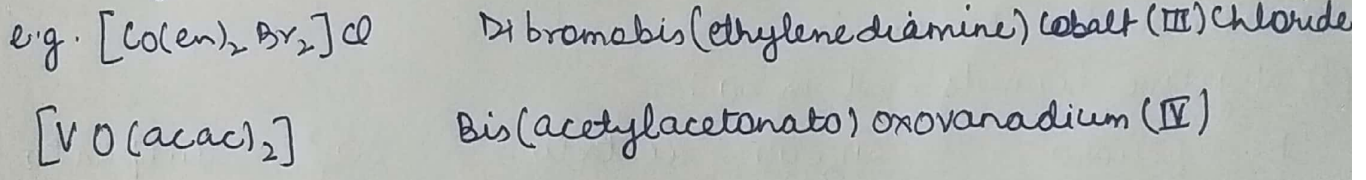 e.g. [Co(en)₂ Br₂]Cl Dibromobis(ethylenediamine) Cobalt (III) Chloride
[VO(acac)₂] Bis(acetylacetonato) oxovanadium (IV)